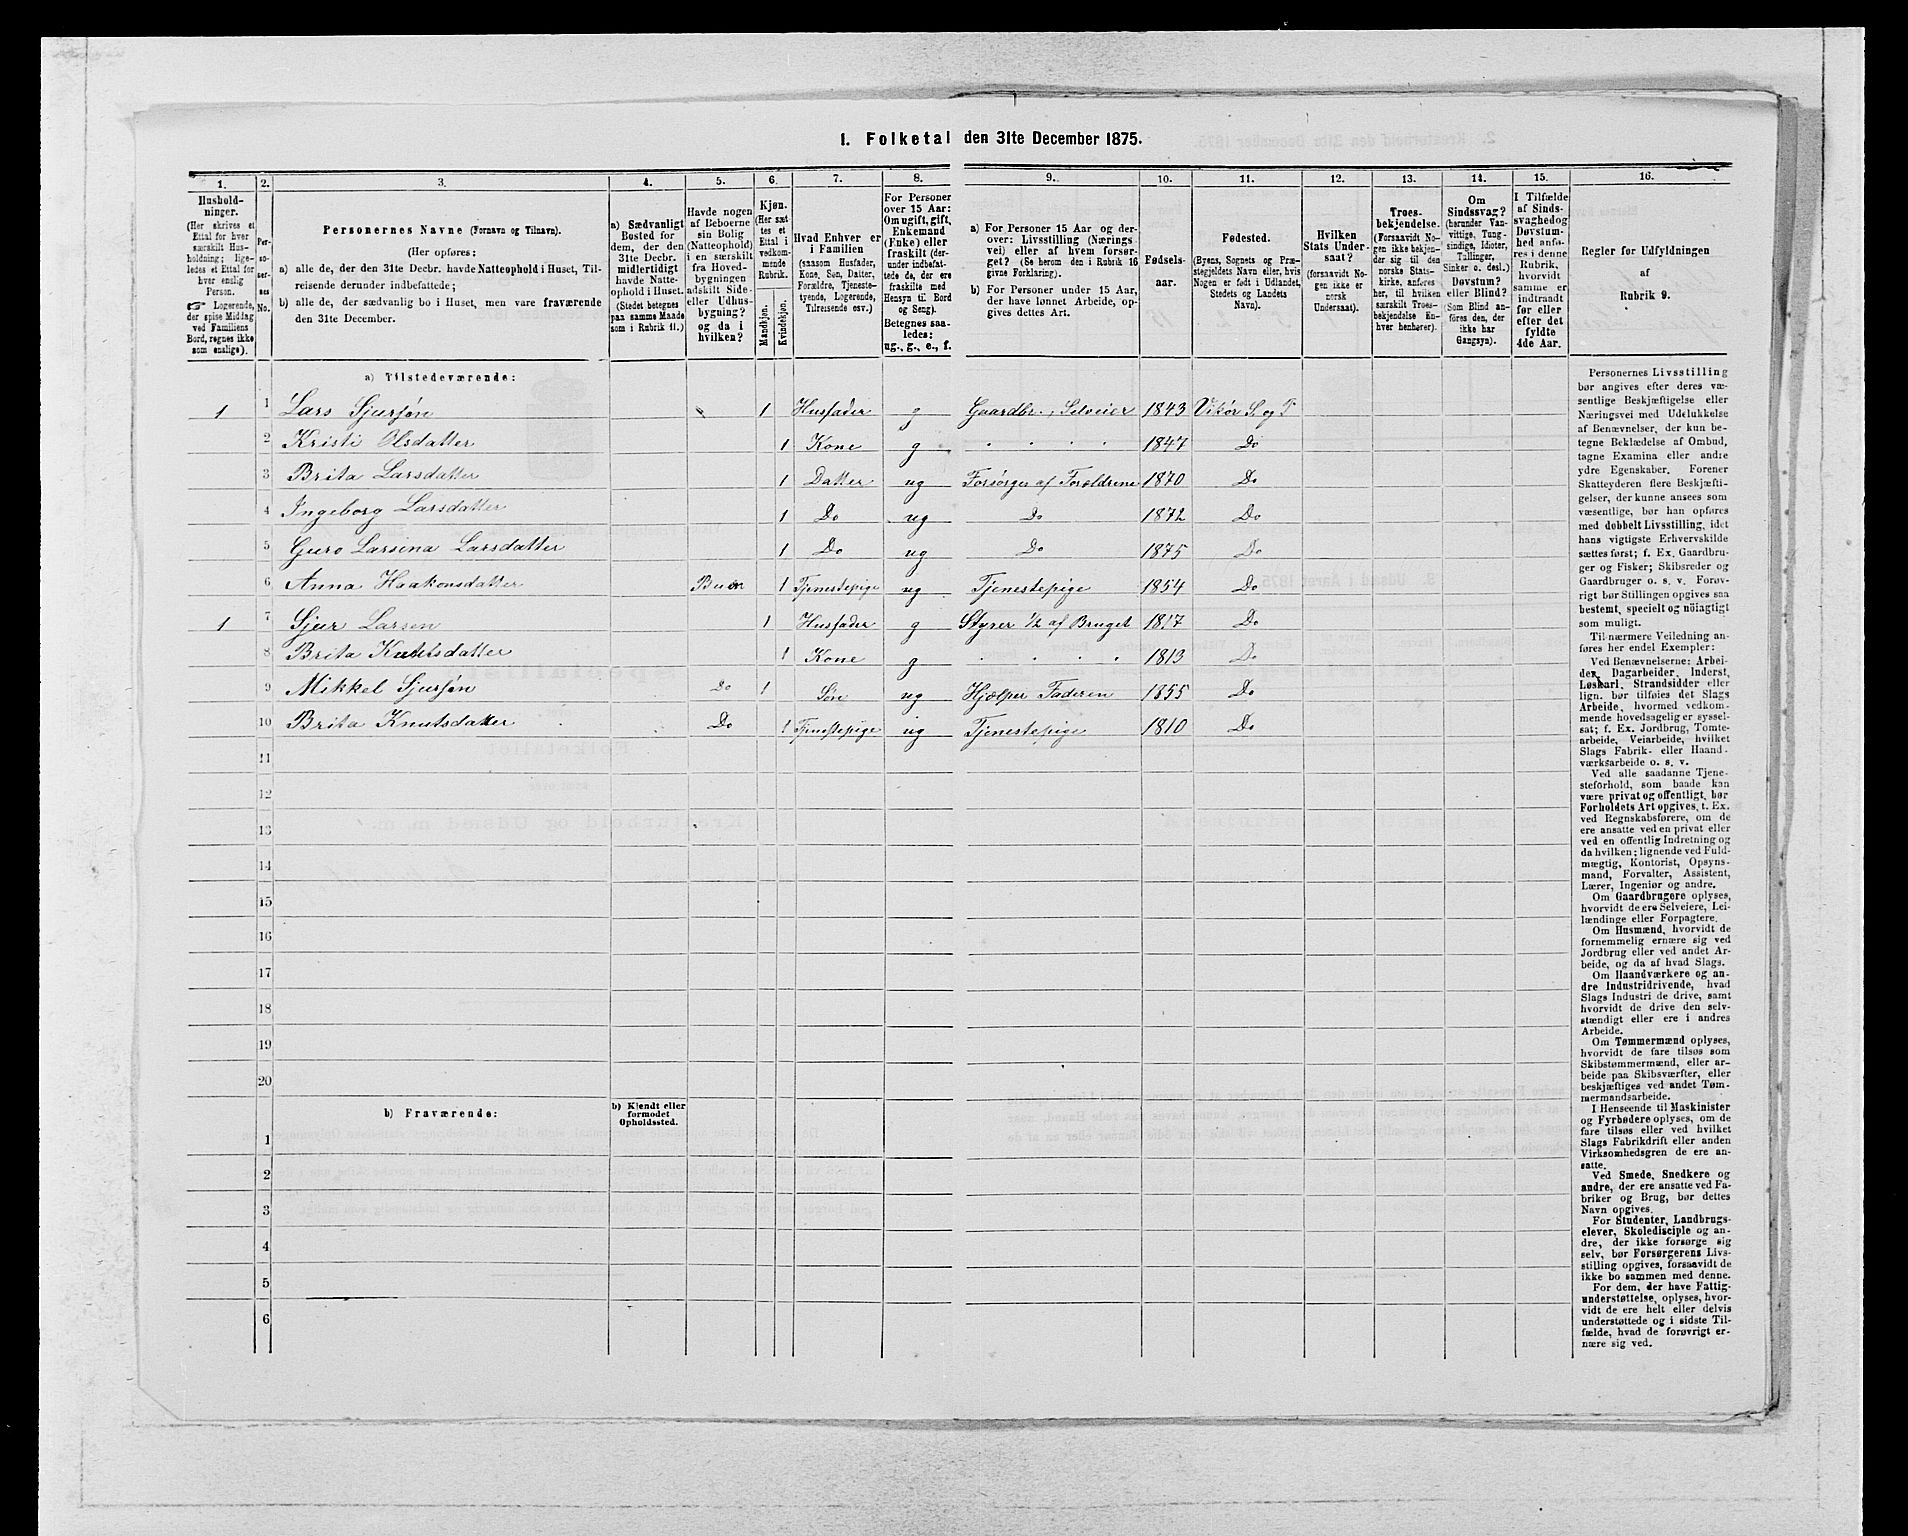 1. Folketal den 31te December 1875.
1. 2. 3. 4. 5. 6. 7. 8. 9. 10. 11. 12. 13. 14. 15. 16.
Hushold-
ninger.
(Her skrives et
Ettal for hver
særskilt Hus-
holdning; lige-
ledes et Ettal for
hver enslig
Person.
☞ Logerende,
der spise Middag
ved Familiens
Bord, regnes ikke
som enslige).
Per-
so-
ner-
nes
No.
Personernes Navne (Fornavn og Tilnavn).
(Her opføres:
a) alle de, der den 31te Decbr. havde Natteophold i Huset, Til-
reisende derunder indbefattede;
b) alle de, der sædvanlig bo i Huset, men vare fraværende
den 31te December.
a) Sædvanligt
Bosted for
dem, der den
31te Decbr.
midlertidigt
havde Natte-
ophold i Huset.
(Stedet betegnes
paa samme Maade
som i Rubrik 11.)
Havde nogen
af Beboerne
sin Bolig
(Natteophold)
i en særskilt
fra Hoved-
bygningen
adskilt Side-
eller Udhus-
bygning?
og da i
hvilken?
Kjøn.
(Her sæt-
tes et
Ettal i
vedkom-
mende
Rubrik.
Mandkjøn.
Kvindekjøn.
Hvad Enhver er
i Familien
(saasom Husfader,
Kone, Søn, Datter,
Forældre, Tjeneste-
tyende, Logerende,
Tilreisende osv.)
For Personer
over 15 Aar:
Om ugift, gift,
Enkemand
(Enke) eller
fraskilt (der-
under indbefat-
tede de, der ere
fraskilte med
Hensyn til Bord
og Seng).
Betegnes saa-
ledes:
ug., g., e., f.
a) For Personer 15 Aar og der-
over: Livsstilling (Nærings-
vei) eller af hvem forsør-
get? (Se herom den i Rubrik 16
givne Forklaring).
b) For Personer under 15 Aar,
der have lønnet Arbeide, op-
gives dettes Art.
Fødsels-
aar.
Fødested.
(Byens, Sognets og Præ-
stegjeldets Navn eller, hvis
Nogen er født i Udlandet,
Stedets og Landets
Navn).
Hvilken
Stats Under-
saat?
(forsaavidt No-
gen ikke er
norsk
Undersaat).
Troes-
bekjendelse.
(Forsaavidt No-
gen ikke bekjen-
der sig til den
norske Stats-
kirke, anføres
her, til hvilken
særskilt Troes-
bekjendelse En-
hver henhører).
Om
Sindssvag?
(herunder Van-
vittige, Tung-
sindige, Idioter,
Tullinger,
Sinker o. desl.)
Døvstum?
eller Blind?
(Som Blind an-
føres den, der
ikke har
Gangsyn).
I Tilfælde
af Sinds-
svaghed og
Døvstum-
hed anfø-
res i denne
Rubrik,
hvorvidt
samme er
indtraadt
før eller
efter det
fyldte
4de Aar.
Regler før Udfyldningen
af
Rubrik 9.
a) Tilstedeværende:
1 1 Lars Sjursøn 1 Husfader g Gaardbr., Selveier 1843 Vikør S. og P
2 Kristi Olsdatter 1 Kone g " " " " 1847 Do
3 Brita Larsdatter 1 Datter ug Forsørges af Forældrene 1870 Do
4 Ingeborg Larsdatter 1 Do ug Do 1872 Do
5 Guro Larsina Larsdatter 1 Do ug Do 1875 Do
6 Anna Haakonsdatter 1 Tjenestepige ug Tjenestepige 1854 Do
1 7 Sjur Larsen 1 Husfader g Styrer 1/2 af Bruget 1817 Do
8 Brita Knutsdatter 1 Kone g " " " " 1813 Do
9 Mikkel Sjursøn Do 1 Søn ug Hjælper Faderen 1855 Do
10 Brita Knutsdatter Do 1 Tjenestepige ug Tjenestepige 1810 Do
11
12
13
14
15
16
17
18
19
20
b) Fraværende:
b) Kjendt eller
formodet
Opholdssted.
1
2
3
4
5
6
Personernes Livsstilling
bør angives efter deres væ-
sentlige Beskjæftigelse eller
Næringsvei med Udelukkelse
af Benævnelser, der kun be-
tegne Beklædelse af Ombud,
tagne Examina eller andre
ydre Egenskaber. Forener
Skatteyderen flere Beskjæfti-
gelser, der kunne ansees som
væsentlige, bør han opføres
med dobbelt Livsstilling, idet
hans vigtigste Erhvervskilde
sættes først; f. Ex. Gaardbru-
ger og Fisker; Skibsreder og
Gaardbruger o. s. v. Forøv-
rigt bør Stillingen opgives saa
bestemt, specielt og nöiagtigt
som muligt.
Til nærmere Veiledning an-
føres her endel Exempler:
Ved Benævnelserne: Arbei-
der, Dagarbeider, Inderst,
Løskarl, Strandsidder eller
lign. bør tilføies det Slags
Arbeide, hvormed vedkom-
mende hovedsagelig er syssel-
sat; f. Ex. Jordbrug, Tomte-
arbeide, Veiarbeide, hvilket
Slags Fabrik- eller Haand-
værksarbeide o. s. v.
Ved alle saadanne Tjene-
steforhold, som baade kan
være privat og offentligt, bør
Forholdets Art opgives, t. Ex.
ved Regnskabsførere, om de
ere ansatte ved en privat eller
ved en offentlig Indretning og
da hvilken; lignende ved Fuld-
mægtig, Kontorist, Opsyns-
mand, Forvalter, Assistent,
Lærer, Ingeniør og andre.
Om Gaardbrugere oplyses,
hvorvidt de ere Selveiere, Lei-
lændinge eller Forpagtere.
Om Husmænd, hvorvidt de
fornemmelig ernære sig ved
Jordbrug eller ved andet Ar-
beide, og da af hvad Slags.
Om Haandværkere og an-
dre Industridrivende, hvad
Slags Industri de drive, samt
hvorvidt de drive den selv-
stændigt eller ere i andres
Arbeide.
Om Tømmermænd oplyses,
hvorvidt de fare tilsøs som
Skibstømmermænd, eller ar-
beide paa Skibsværfter, eller
beskjæftiges ved andet Tøm-
mermandsarbeide.
I Henseende til Maskinister
og Fyrbødere oplyses, om de
fare tilsøs eller ved hvilket
Slags Fabrikdrift eller anden
Virksomhedsgren de ere an-
satte.
Ved Smede, Snedkere og
andre, der ere ansatte ved Fa-
briker og Brug, bør dettes
Navn opgives.
For Studenter, Landbrugs-
elever, Skoledisciple og an-
dre, der ikke forsørge sig
selv, bør Forsørgerens Livs-
stilling opgives, forsaavidt de
ikke bo sammen med denne.
For dem, der have Fattig-
understøttelse, oplyses, hvor-
vidt de ere helt eller delvis
understøttede og i sidste Til-
fælde, hvad de forøvrigt er-
nære sig ved.